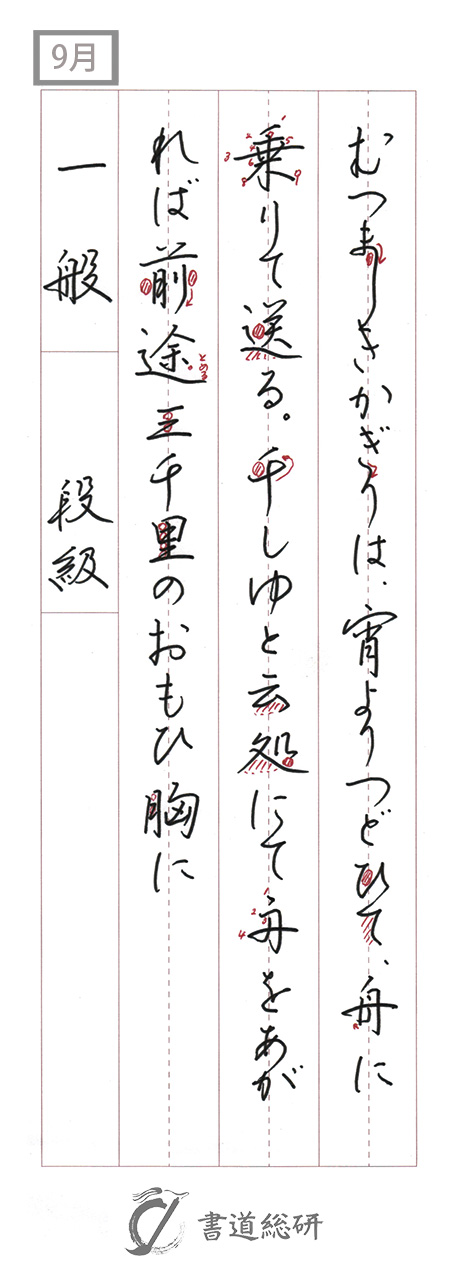 9月
むつましきかぎりは、宵よりつどひて、舟に
乗りて送る。千しゆと云処にて舟をあが
れば前途三千里のおもひ胸に
一般
段級
書道総研